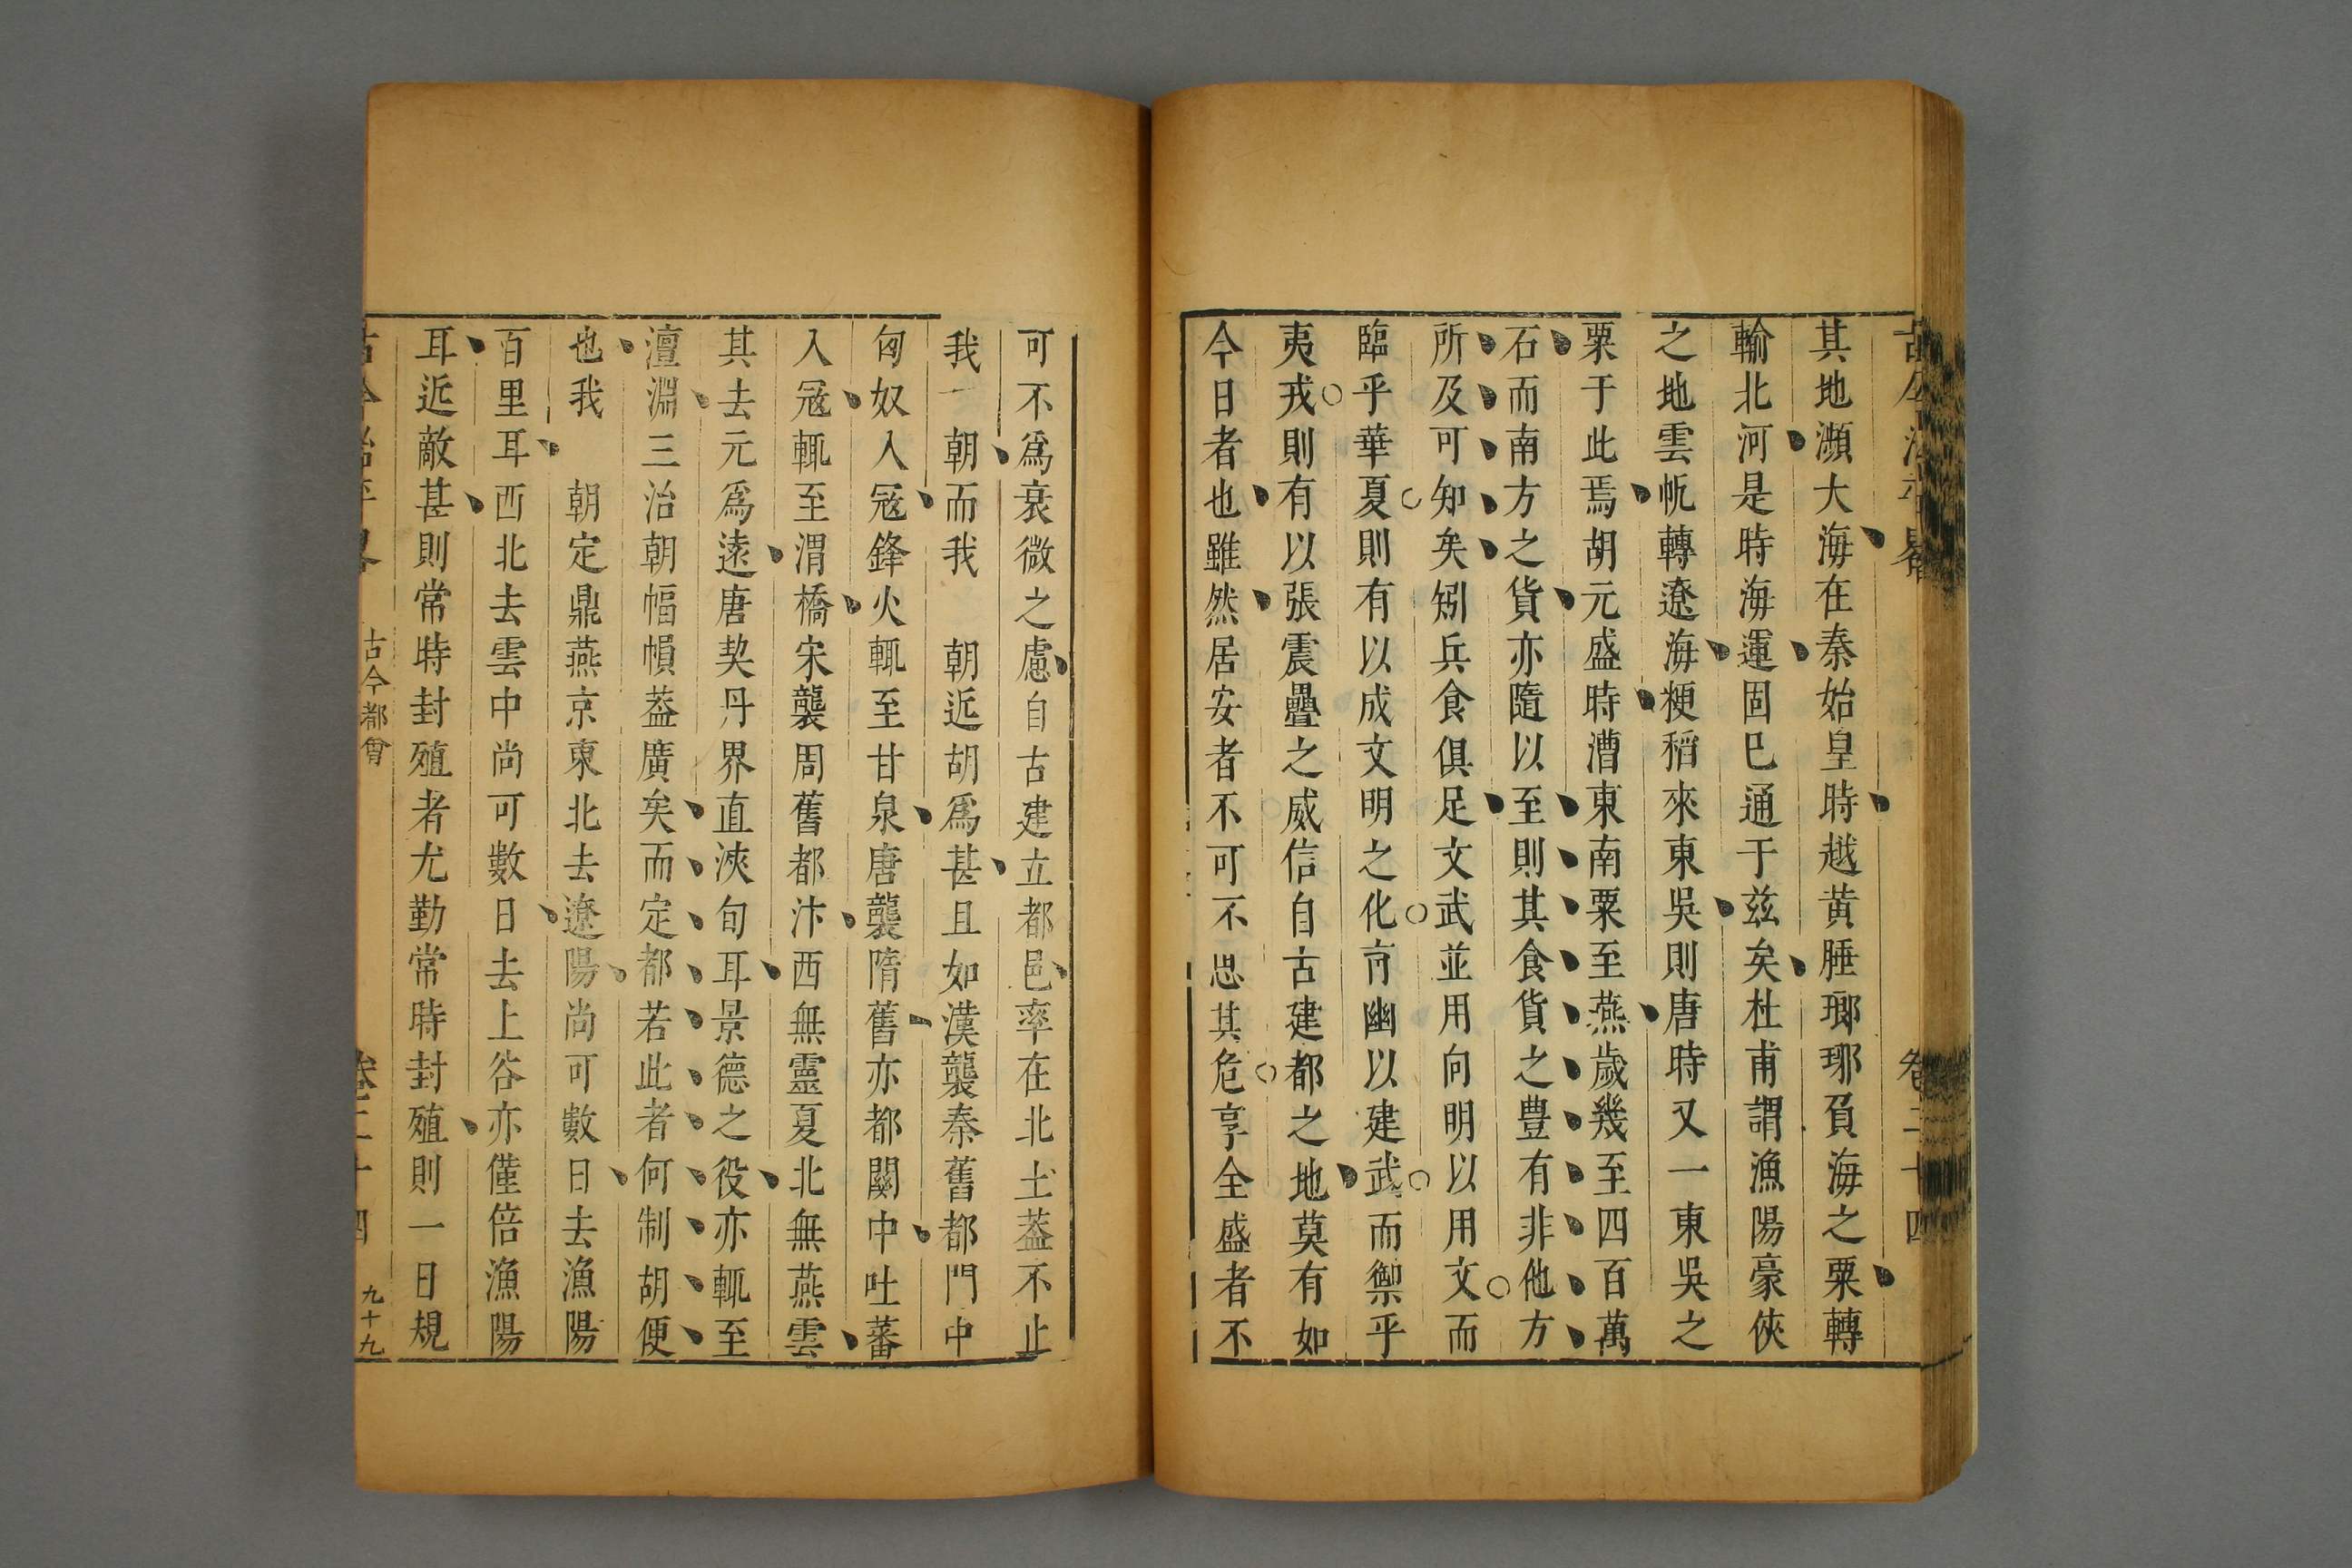 其地瀕大海在秦始皇時越黄腄瑯琊負海之粟轉
輸北河是時海運固巳通于兹矣杜甫謂漁陽豪俠
之地雲帆轉遼海粳稻來東吳則唐時又一東吳之
粟于此焉胡元盛時漕東南粟至燕歲幾至四百萬
石而南方之貨亦隨以至則其食貨之豊有非他方
所及可知矣矧兵食俱足文武並用向明以用文而
臨乎華夏則有以成文明之化肓幽以建武而禦乎
夷戎則有以張震疊之威信自古建都之地莫有如
今日者也雖然居安者不可不思其危亨全盛者不
可不爲衰微之慮自古建立都邑率在北土葢不止
我 朝而我 朝近胡爲甚且如漢襲秦舊都門中
匈奴入冦鋒火輒至甘泉唐襲隋舊亦都關中吐蕃
入冦輒至渭橋宋襲周舊都汴西無靈夏北無燕雲
其去元爲逺唐契丹界直浹旬耳景德之役亦輒至
澶淵三治朝幅幀葢廣矣而定都若此者何制胡便
也我 朝定鼎燕京東北去遼陽尚可數日去漁陽
百里耳西北去雲中尚可數日去上谷亦僅倍漁陽
耳近敵甚則常時封殖者尤勤常時封殖則一日規
古今都會
九十九